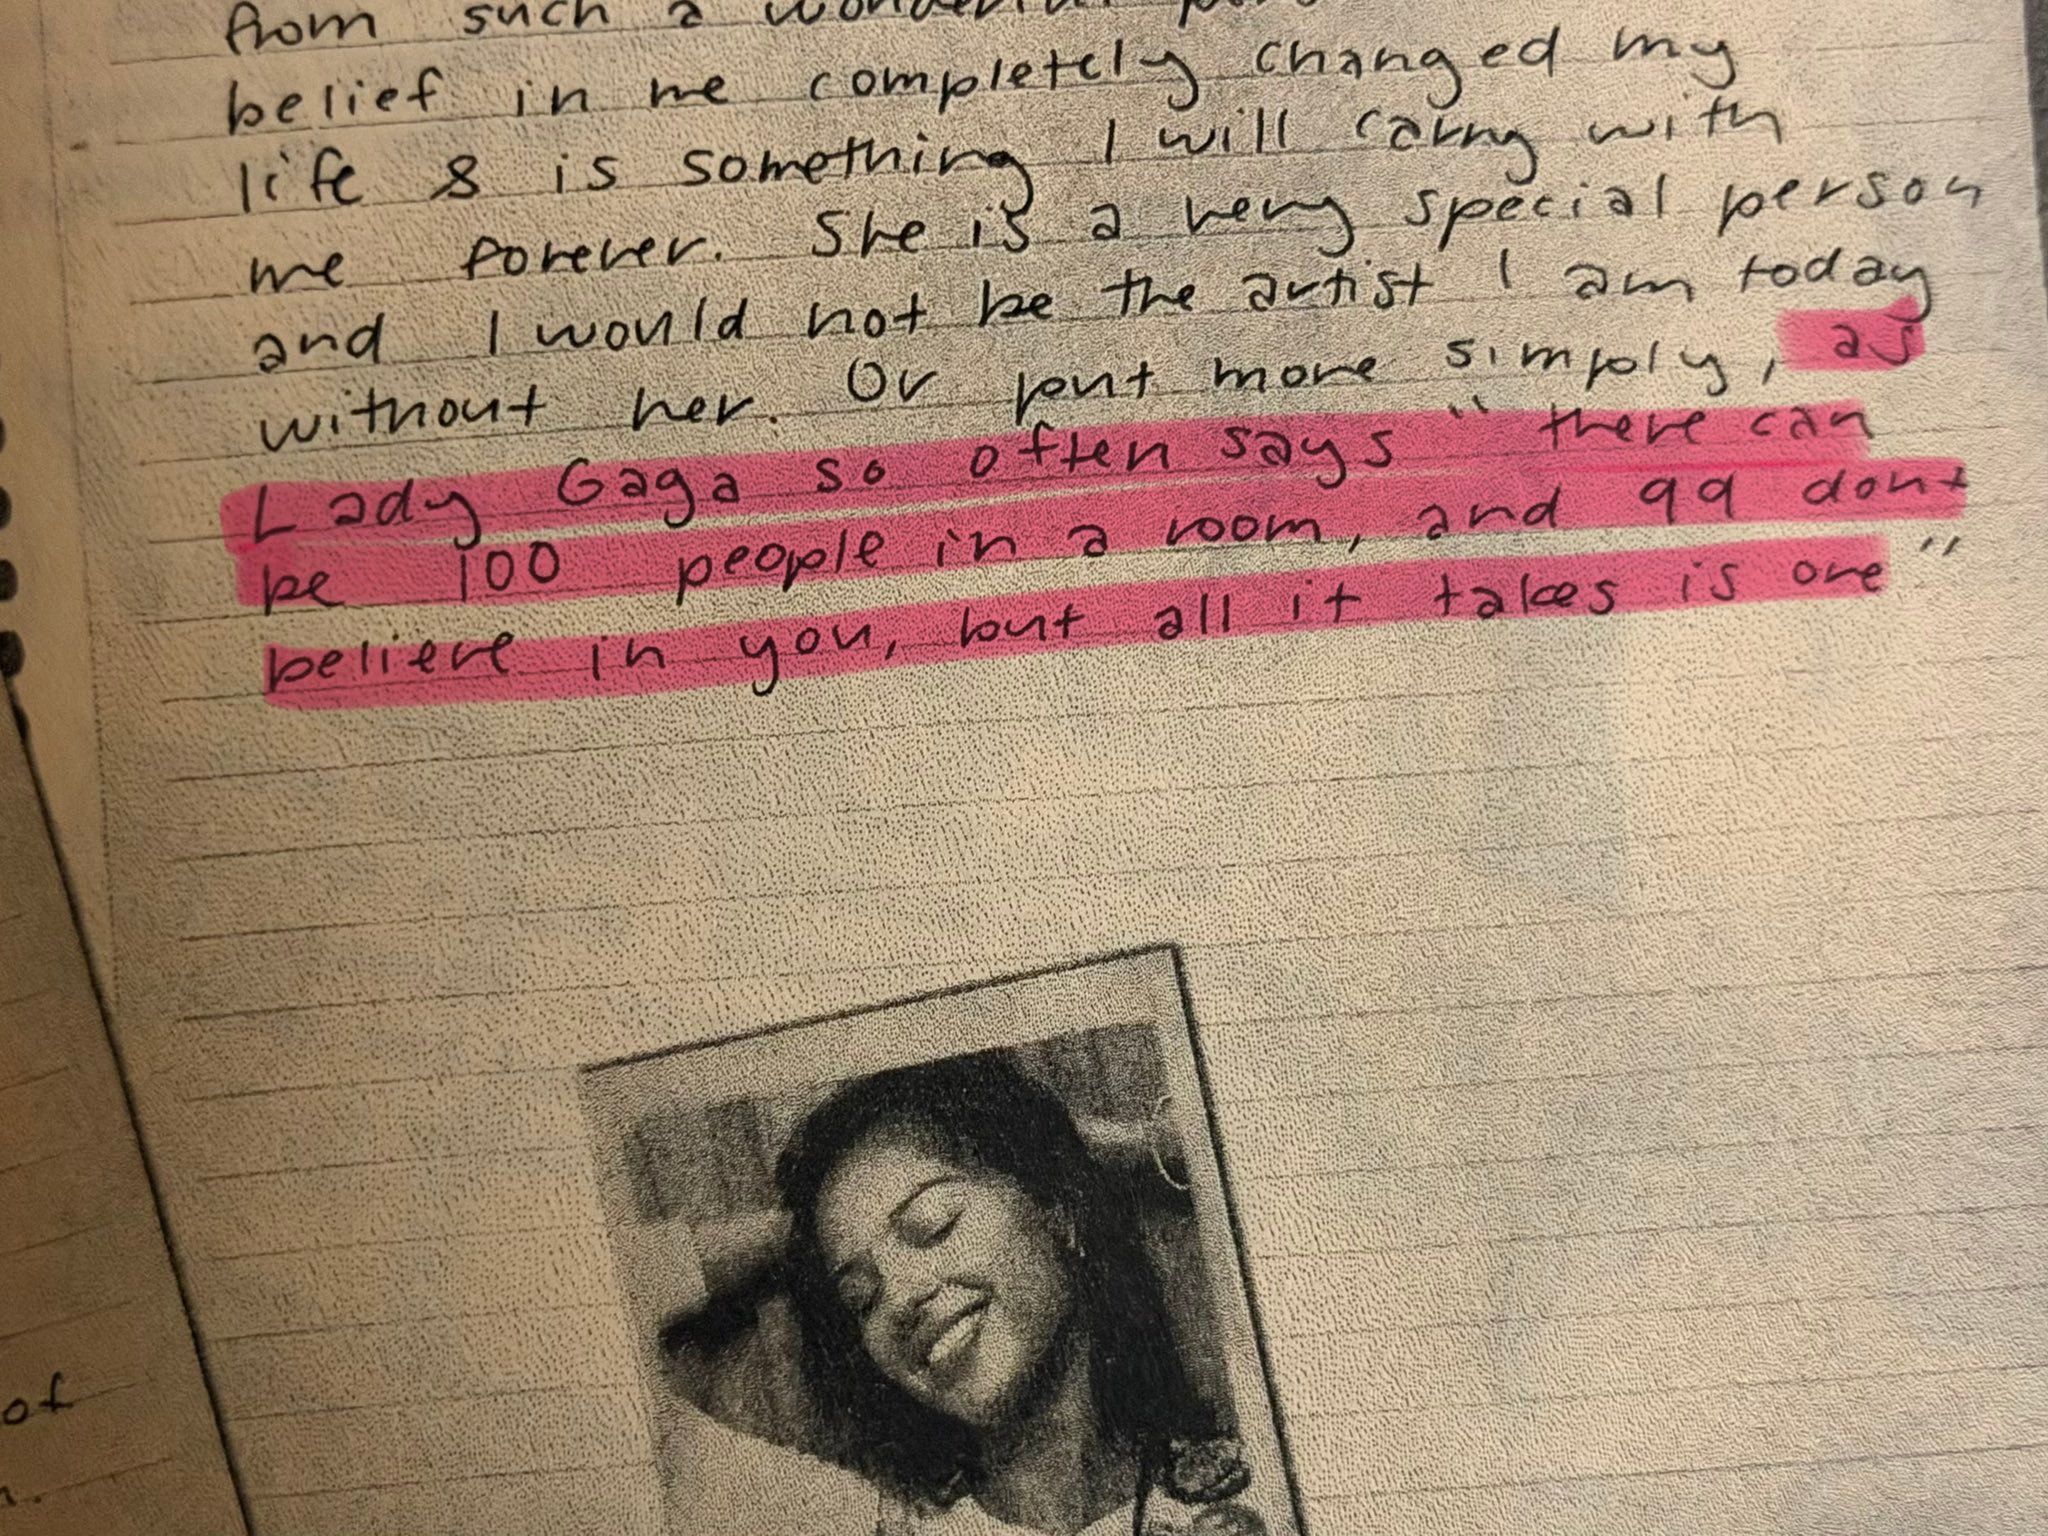 from such a wonderful
belief in me completely changed my
life & is something I will carry with
me forever. She is a very special person
and I would not be the artist I am today
without her. Or put more simply, as
Lady Gaga so often says "there can
be 100 people in a room, and 99 dont
believe in you, but all it takes is one"
of